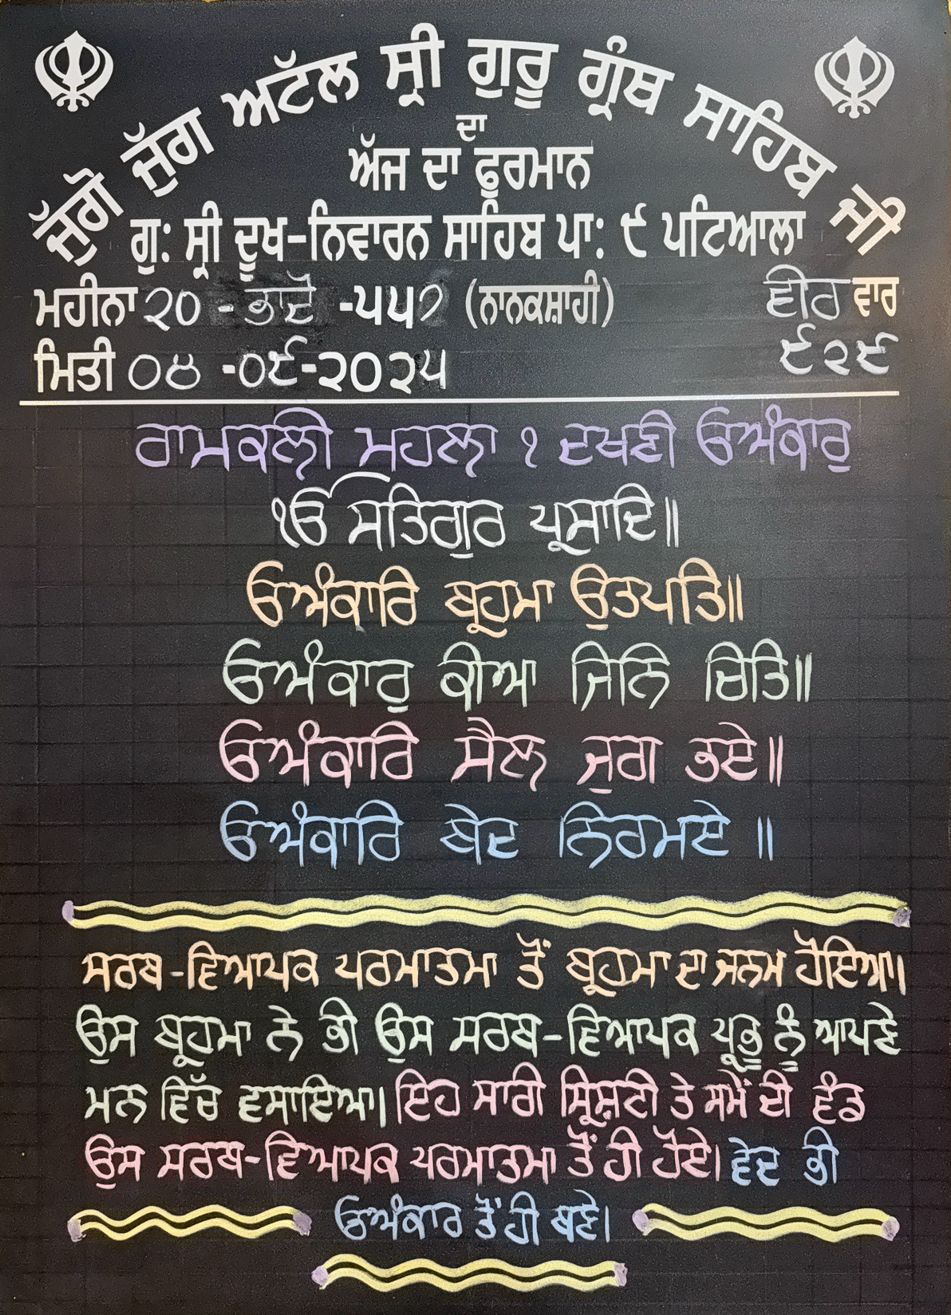 ਜੁੱਗੋ ਜੁੱਗ ਅਟੱਲ ਸ੍ਰੀ ਗੁਰੂ ਗ੍ਰੰਥ ਸਾਹਿਬ ਜੀ
ਦਾ
ਅੱਜ ਦਾ ਫੁਰਮਾਨ
ਗੁ: ਸ੍ਰੀ ਦੂਖ-ਨਿਵਾਰਨ ਸਾਹਿਬ ਪਾ: ੯ ਪਟਿਆਲਾ
ਮਹੀਨਾ ੨੦ - ਭਾਦੋਂ -੫੫੭ (ਨਾਨਕਸ਼ਾਹੀ) ਵੀਰ ਵਾਰ
ਮਿਤੀ ੦੪ -੦੯-੨੦੨੫ ੯੨੯
ਰਾਮਕਲੀ ਮਹਲਾ ੧ ਦਖਣੀ ਓਅੰਕਾਰੁ
ੴ ਸਤਿਗੁਰ ਪ੍ਰਸਾਦਿ॥
ਓਅੰਕਾਰਿ ਬ੍ਰਹਮਾ ਉਤਪਤਿ॥
ਓਅੰਕਾਰੁ ਕੀਆ ਜਿਨਿ ਚਿਤਿ॥
ਓਅੰਕਾਰਿ ਸੈਲ ਜੁਗ ਭਏ॥
ਓਅੰਕਾਰਿ ਬੇਦ ਨਿਰਮਏ ॥
ਸਰਬ-ਵਿਆਪਕ ਪਰਮਾਤਮਾ ਤੋਂ ਬ੍ਰਹਮਾ ਦਾ ਜਨਮ ਹੋਇਆ।
ਉਸ ਬ੍ਰਹਮਾ ਨੇ ਭੀ ਉਸ ਸਰਬ-ਵਿਆਪਕ ਪ੍ਰਭੂ ਨੂੰ ਆਪਣੇ
ਮਨ ਵਿੱਚ ਵਸਾਇਆ। ਇਹ ਸਾਰੀ ਸ੍ਰਿਸ਼ਟੀ ਤੇ ਸਮੇਂ ਦੀ ਵੰਡ
ਉਸ ਸਰਬ-ਵਿਆਪਕ ਪਰਮਾਤਮਾ ਤੋਂ ਹੀ ਹੋਏ। ਵੇਦ ਭੀ
ਓਅੰਕਾਰ ਤੋਂ ਹੀ ਬਣੇ।